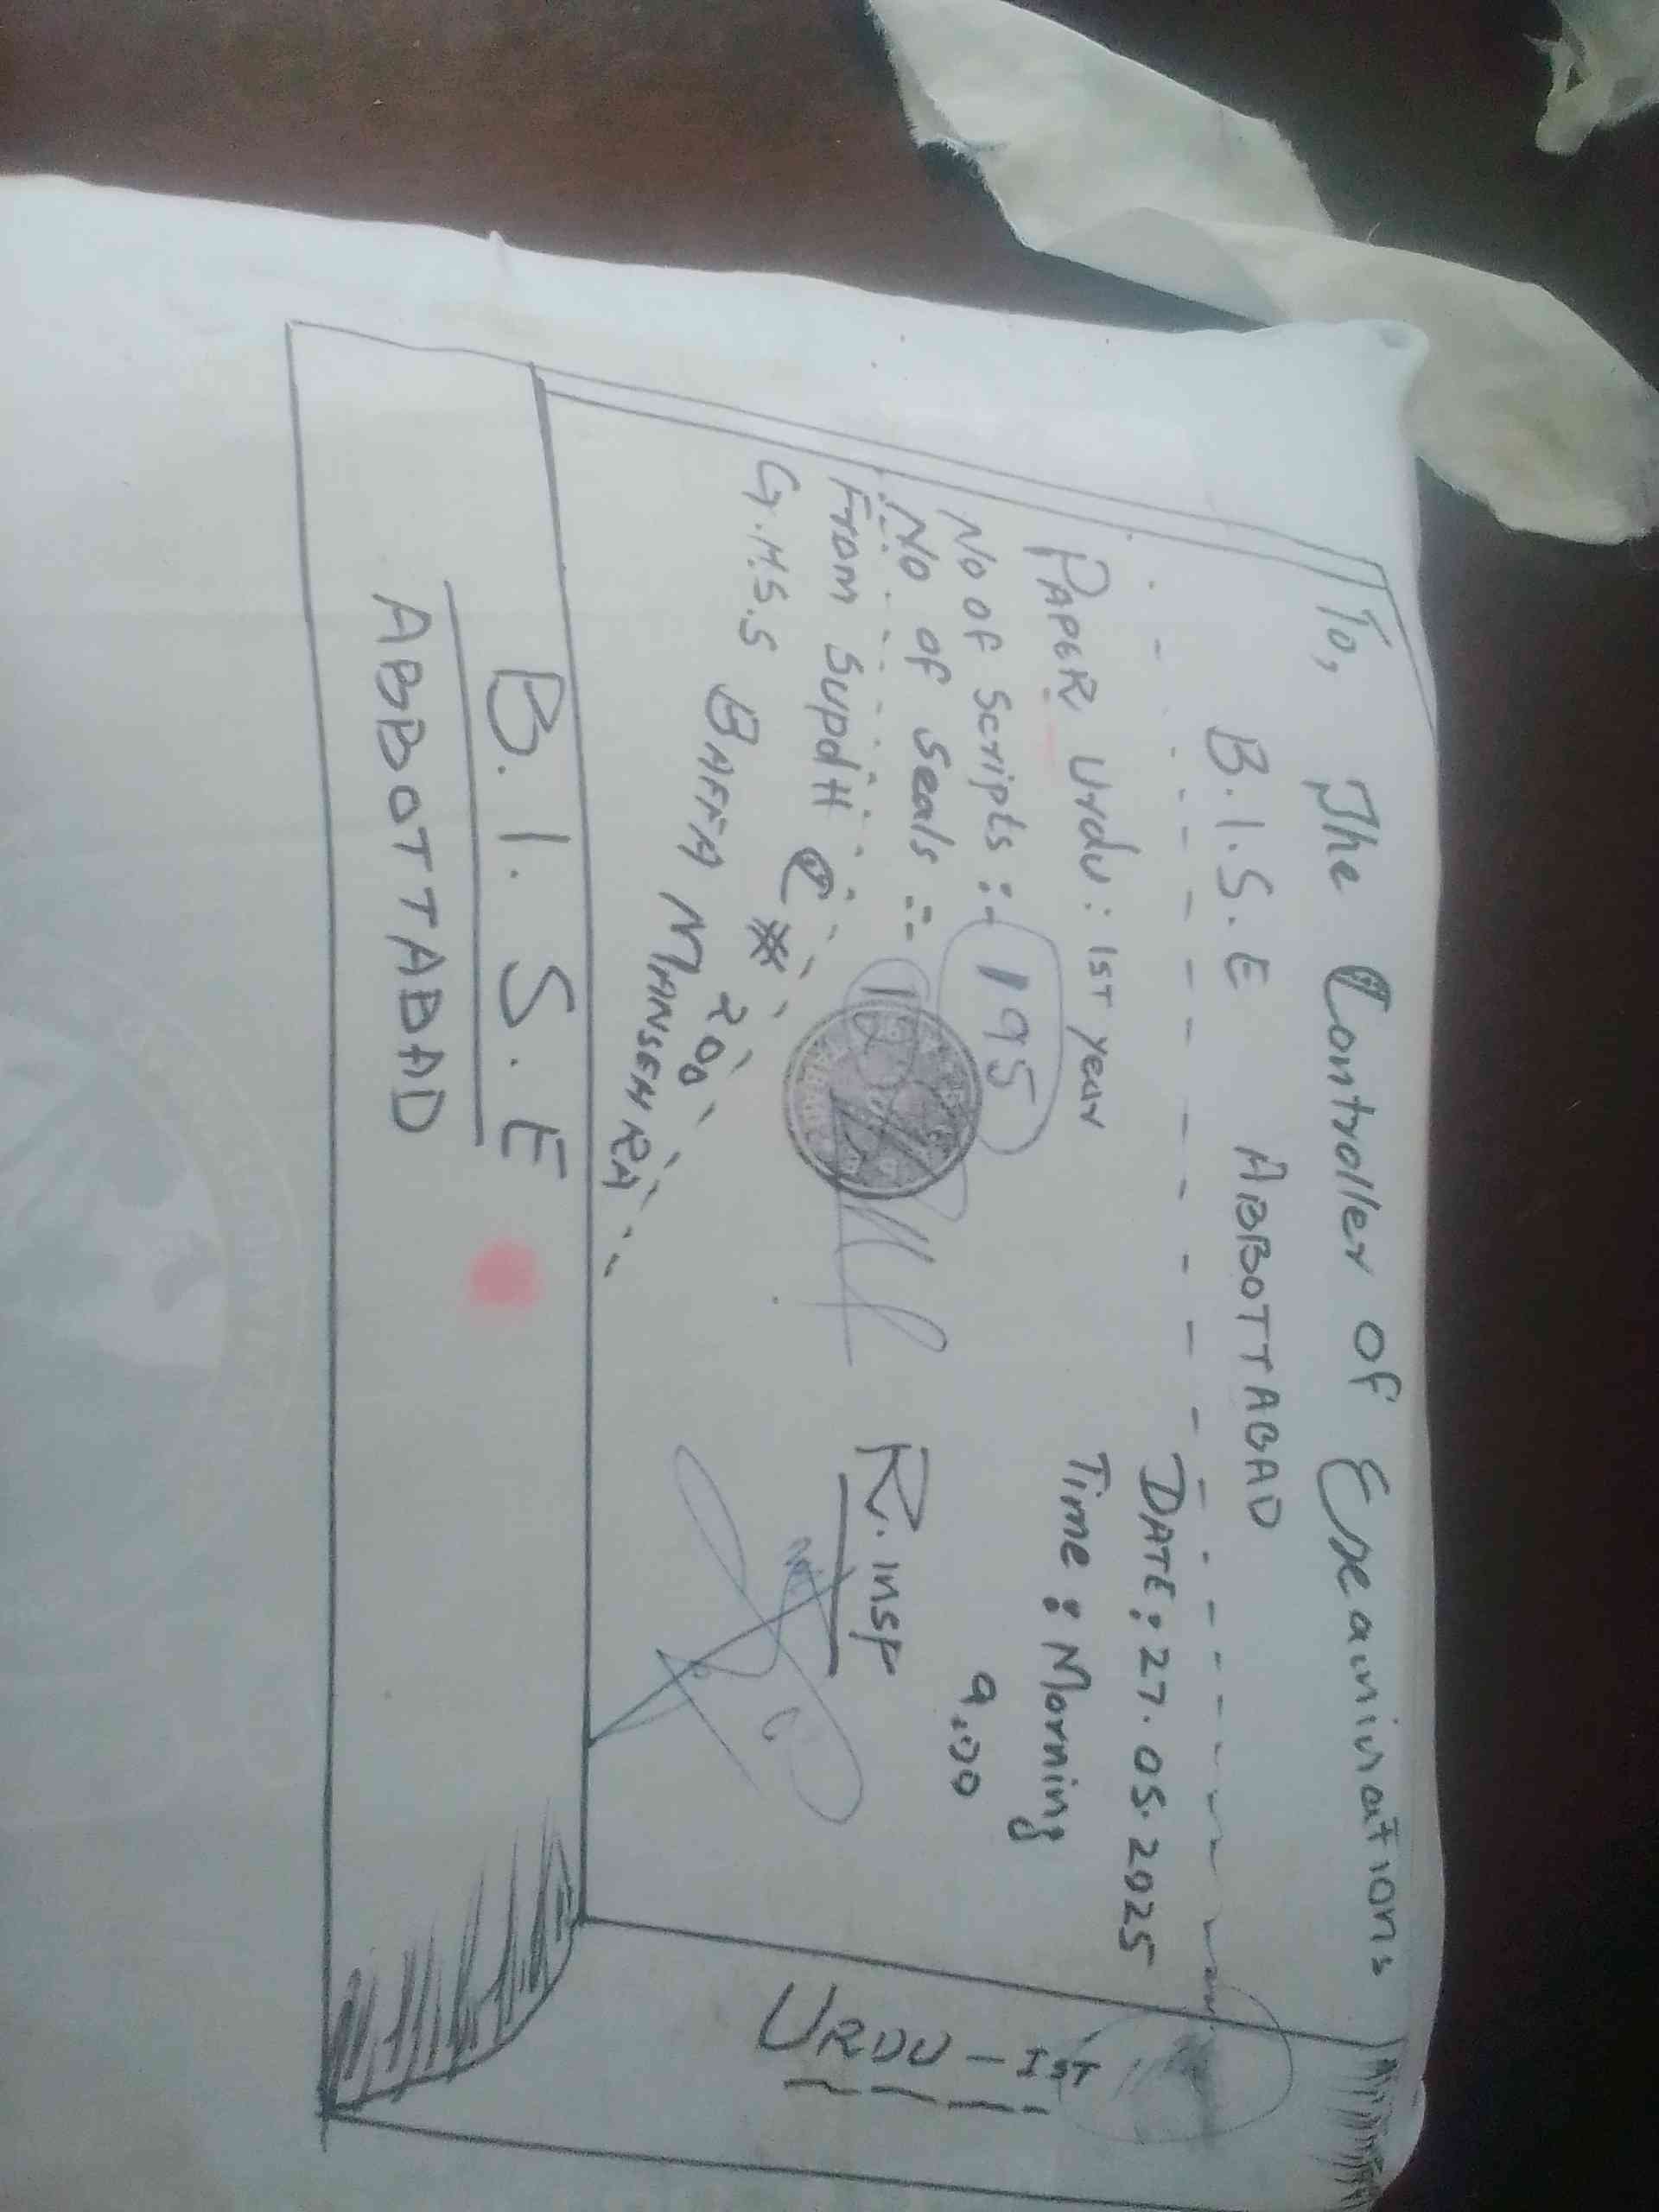 To, The Controller of Examinations
B.I.S.E ABBOTTABAD
DATE: 27.05.2025
PAPER Urdu: 1ST year
Time: Morning
9:00
No of Scripts :- 195
No of Seals :-
From Supdtt C # 200
G.H.S.S BAFFA MANSEHRA
R. insp
URDU - IST
B.I.S.E
ABBOTTABAD